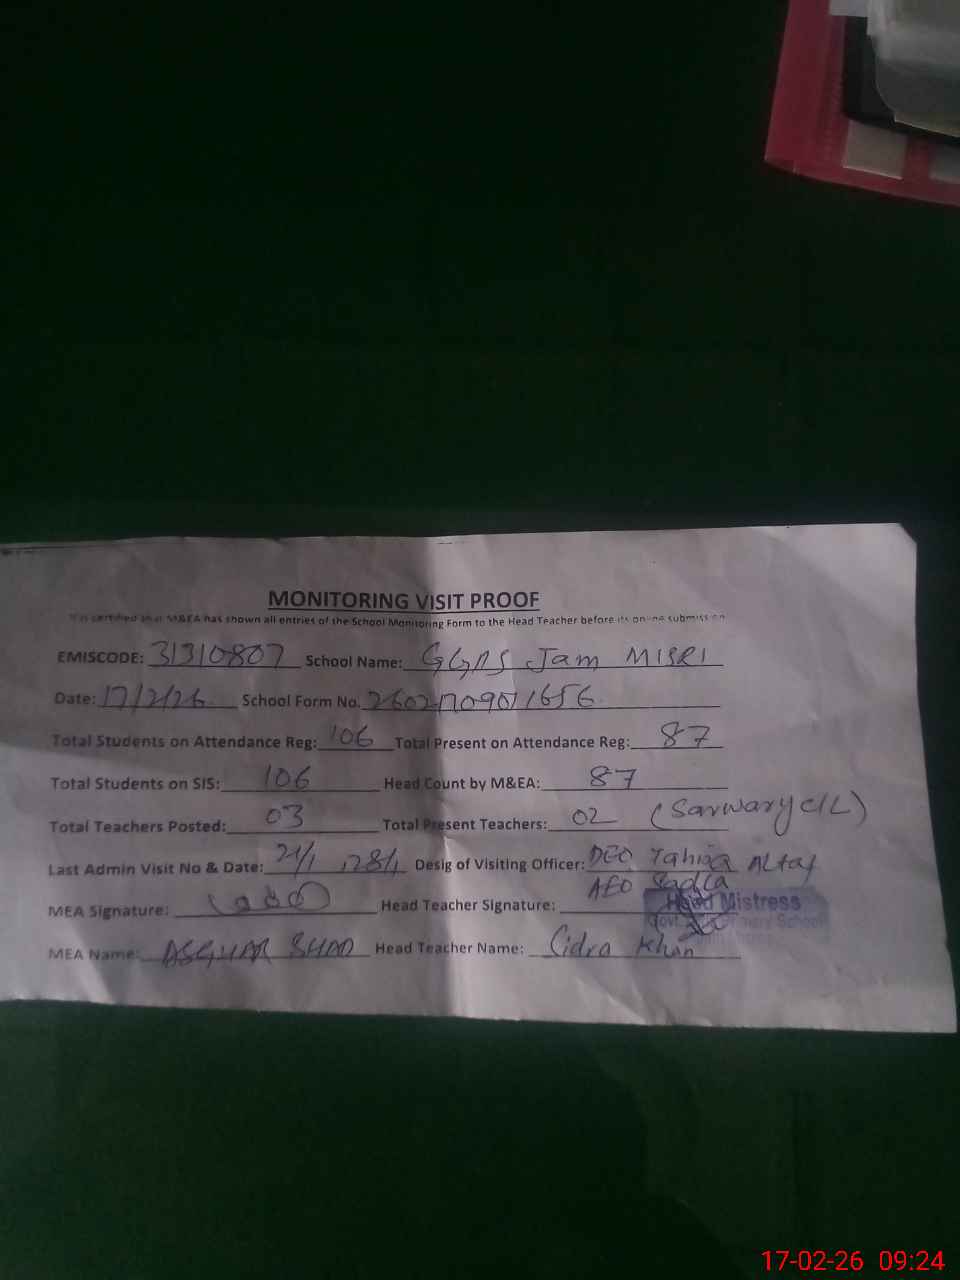 MONITORING VISIT PROOF
It is certified that M&EA has shown all entries of the School Monitoring Form to the Head Teacher before its online submission
EMISCODE: 31310807 School Name: GGPS Jam MISRI
Date: 17/2/26 School Form No. 2602170901656
Total Students on Attendance Reg: 106 Total Present on Attendance Reg: 87
Total Students on SIS: 106 Head Count by M&EA: 87
Total Teachers Posted: 03 Total Present Teachers: 02 (Sarwary C/L)
Last Admin Visit No & Date: 21/1, 28/1 Desig of Visiting Officer: DEO Tahira ALtaf
AEO Sadia
MEA Signature: Head Teacher Signature:
Head Mistress
Govt. Primary School
MEA Name: ASGHAR Head Teacher Name: Sidra Khan
17-02-26 09:24